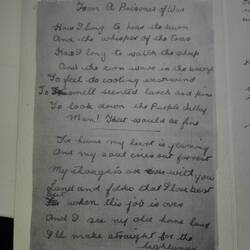 From A Prisoner of War
How I long to hear the burn
And the whisper of the trees
How I long to watch the sheep
And the corn wave in the breeze
To feel the cooling westwind
To smell scented larch and pine
To look down the Purple Valley
Man! That would be fine
I've hame my heart is yearning
And my soul cries out for rest
My thoughts are ever with you
Land and folks that I love best
But when this job is over
And I see my old home land
I'll make straight for the